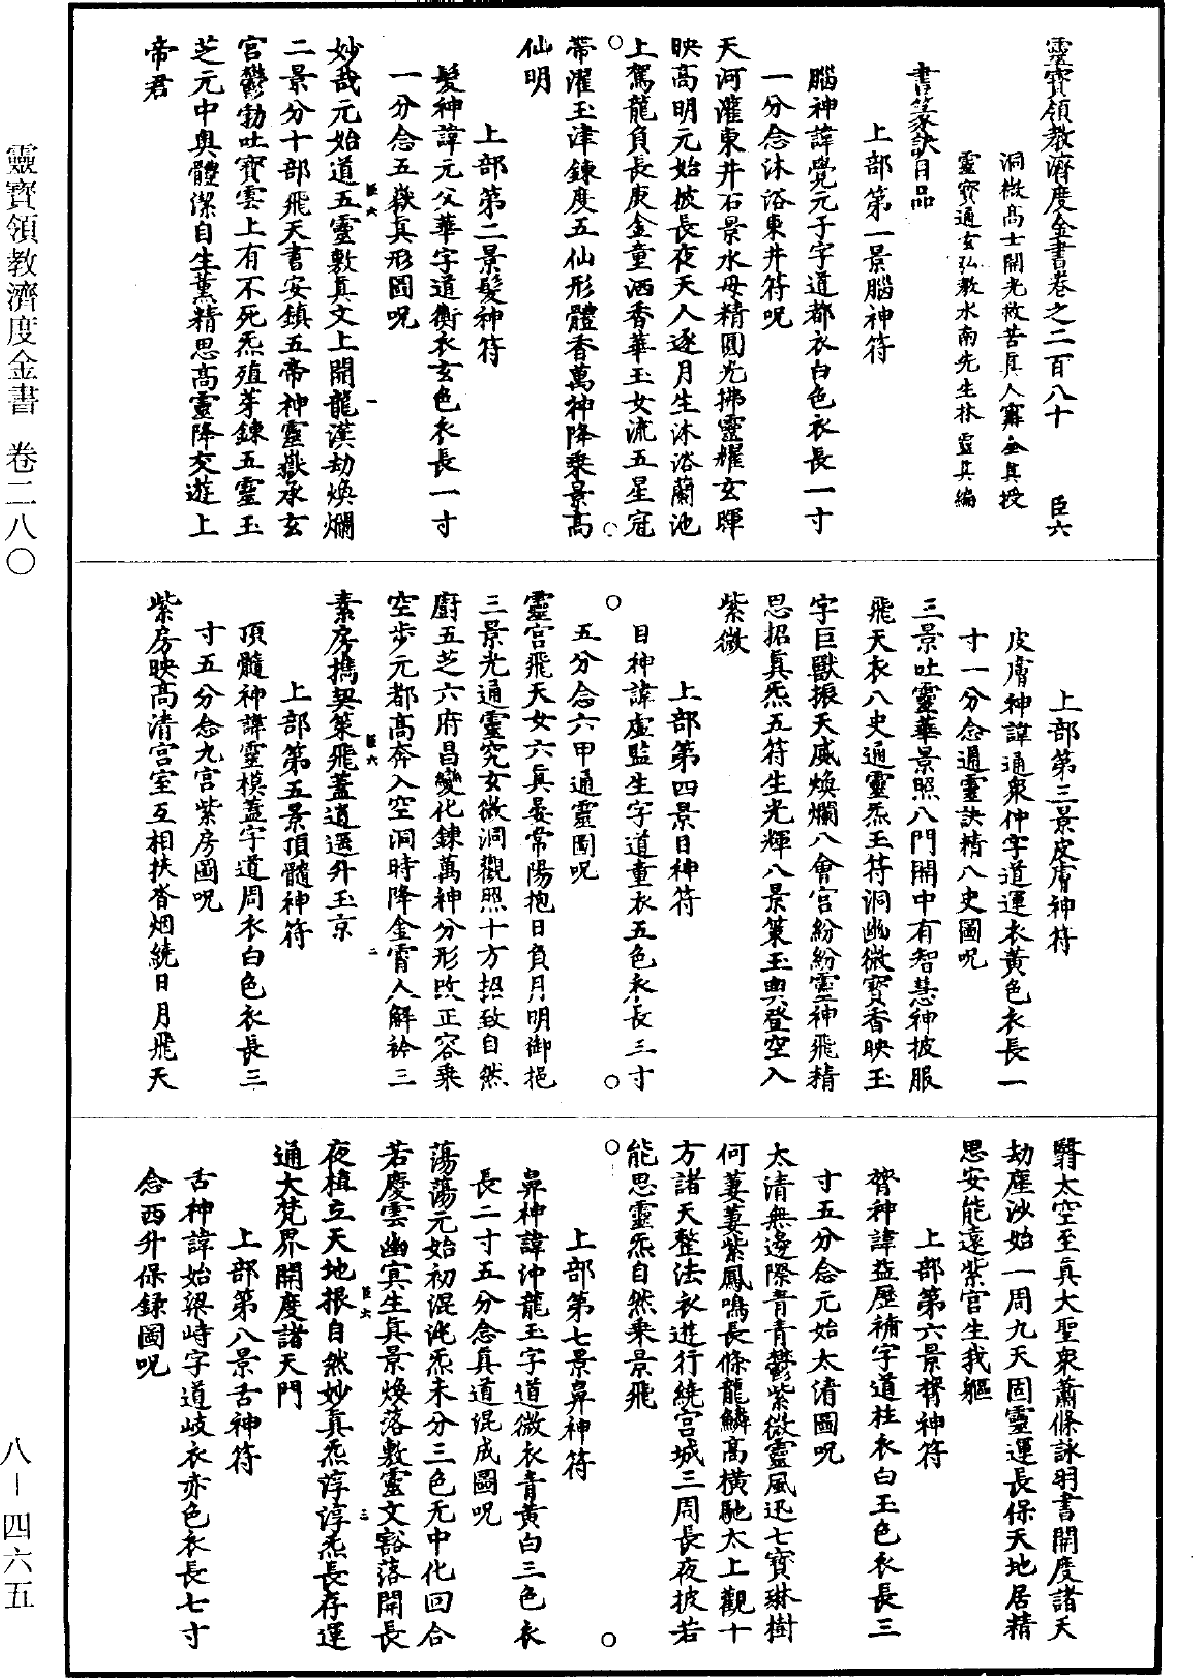 靈寶領教濟度金書卷之二百八十　臣六
洞微高士開光救苦真人甯全真授
靈寶通玄弘教水南先生林靈真編
書篆訣目品
上部第一景腦神符
腦神諱覺元子字道都衣白色衣長一寸
一分念沐浴東井符呪
天河灌東井石景水母精圓光拂靈耀玄暉
映高明元始披長夜天人逐月生沐浴蘭池
上駕龍負長庚金童洒香華玉女流五星冠
帶濯玉津鍊度五仙形體香萬神降乘景高
仙明
上部第二景髮神符
髮神諱元父華字道衡衣玄色衣長一寸
一分念五嶽真形圖呪
臣六　一
妙哉元始道五靈敷真文上開龍漢劫煥爛
二景分十部飛天書安鎮五帝神靈嶽承玄
宮鬱勃吐寶雲上有不死炁殖芽鍊五靈玉
芝元中奥體潔自生薰精思高靈降交遊上
帝君
上部第三景皮膚神符
皮膚神諱通衆仲字道運衣黃色衣長一
寸一分念通靈訣精八史圖呪
三景吐靈華景照八門開中有智慧神披服
飛天衣八史通靈炁玉符洞幽微寶香映玉
字巨獸振天威煥爛八會宮紛紛靈神飛精
思招真炁五符生光輝八景策玉輿登空入
紫微
上部第四景目神符
目神諱虛監生字道童衣五色衣長三寸
五分念六甲通靈圖呪
靈宮飛天女六真晏常陽抱日負月明御挹
三景光通靈究玄微洞觀照十方招致自然
廚五芝六府昌變化鍊萬神分形改正容乗
空步元都高奔入空洞時降金霄人解衿三
臣六　二
素房攜契策飛蓋逍遥升玉京
上部第五景頂髓神符
頂髓神諱靈模蓋字道周衣白色衣長三
寸五分念九宮紫房圖呪
紫房映高清宮室互相扶香烟繞日月飛天
翳太空至真大聖衆蕭條詠羽書開度諸天
劫塵沙始一周九天固靈運長保天地居精
思安能遠紫宮生我軀
上部第六景膂神符
膂神諱益歷補字道柱衣白玉色衣長三
寸五分念元始太清圖呪
太清無邊際青青鬱紫微靈風迅七寶琳樹
何萋萋紫鳳鳴長條龍鱗高橫馳太上觀十
方諸天整法衣遊行繞宮城三周長夜披若
能思靈炁自然乗景飛
上部第七景鼻神符
鼻神諱沖龍玉字道微衣青黃白三色衣
長二寸五分念真道混成圖呪
蕩蕩元始初混沌炁未分三色无中化回合
若慶雲幽冥生真景煥落敷靈文豁落開長
臣六　三
夜植立天地根自然妙真炁淳淳炁長存運
通大梵界開度諸天門
上部第八景舌神符
舌神諱始梁峙字道岐衣赤色衣長七寸
念西升保錄圖呪
靈寶領教濟度金書　卷二八〇
八—四六五